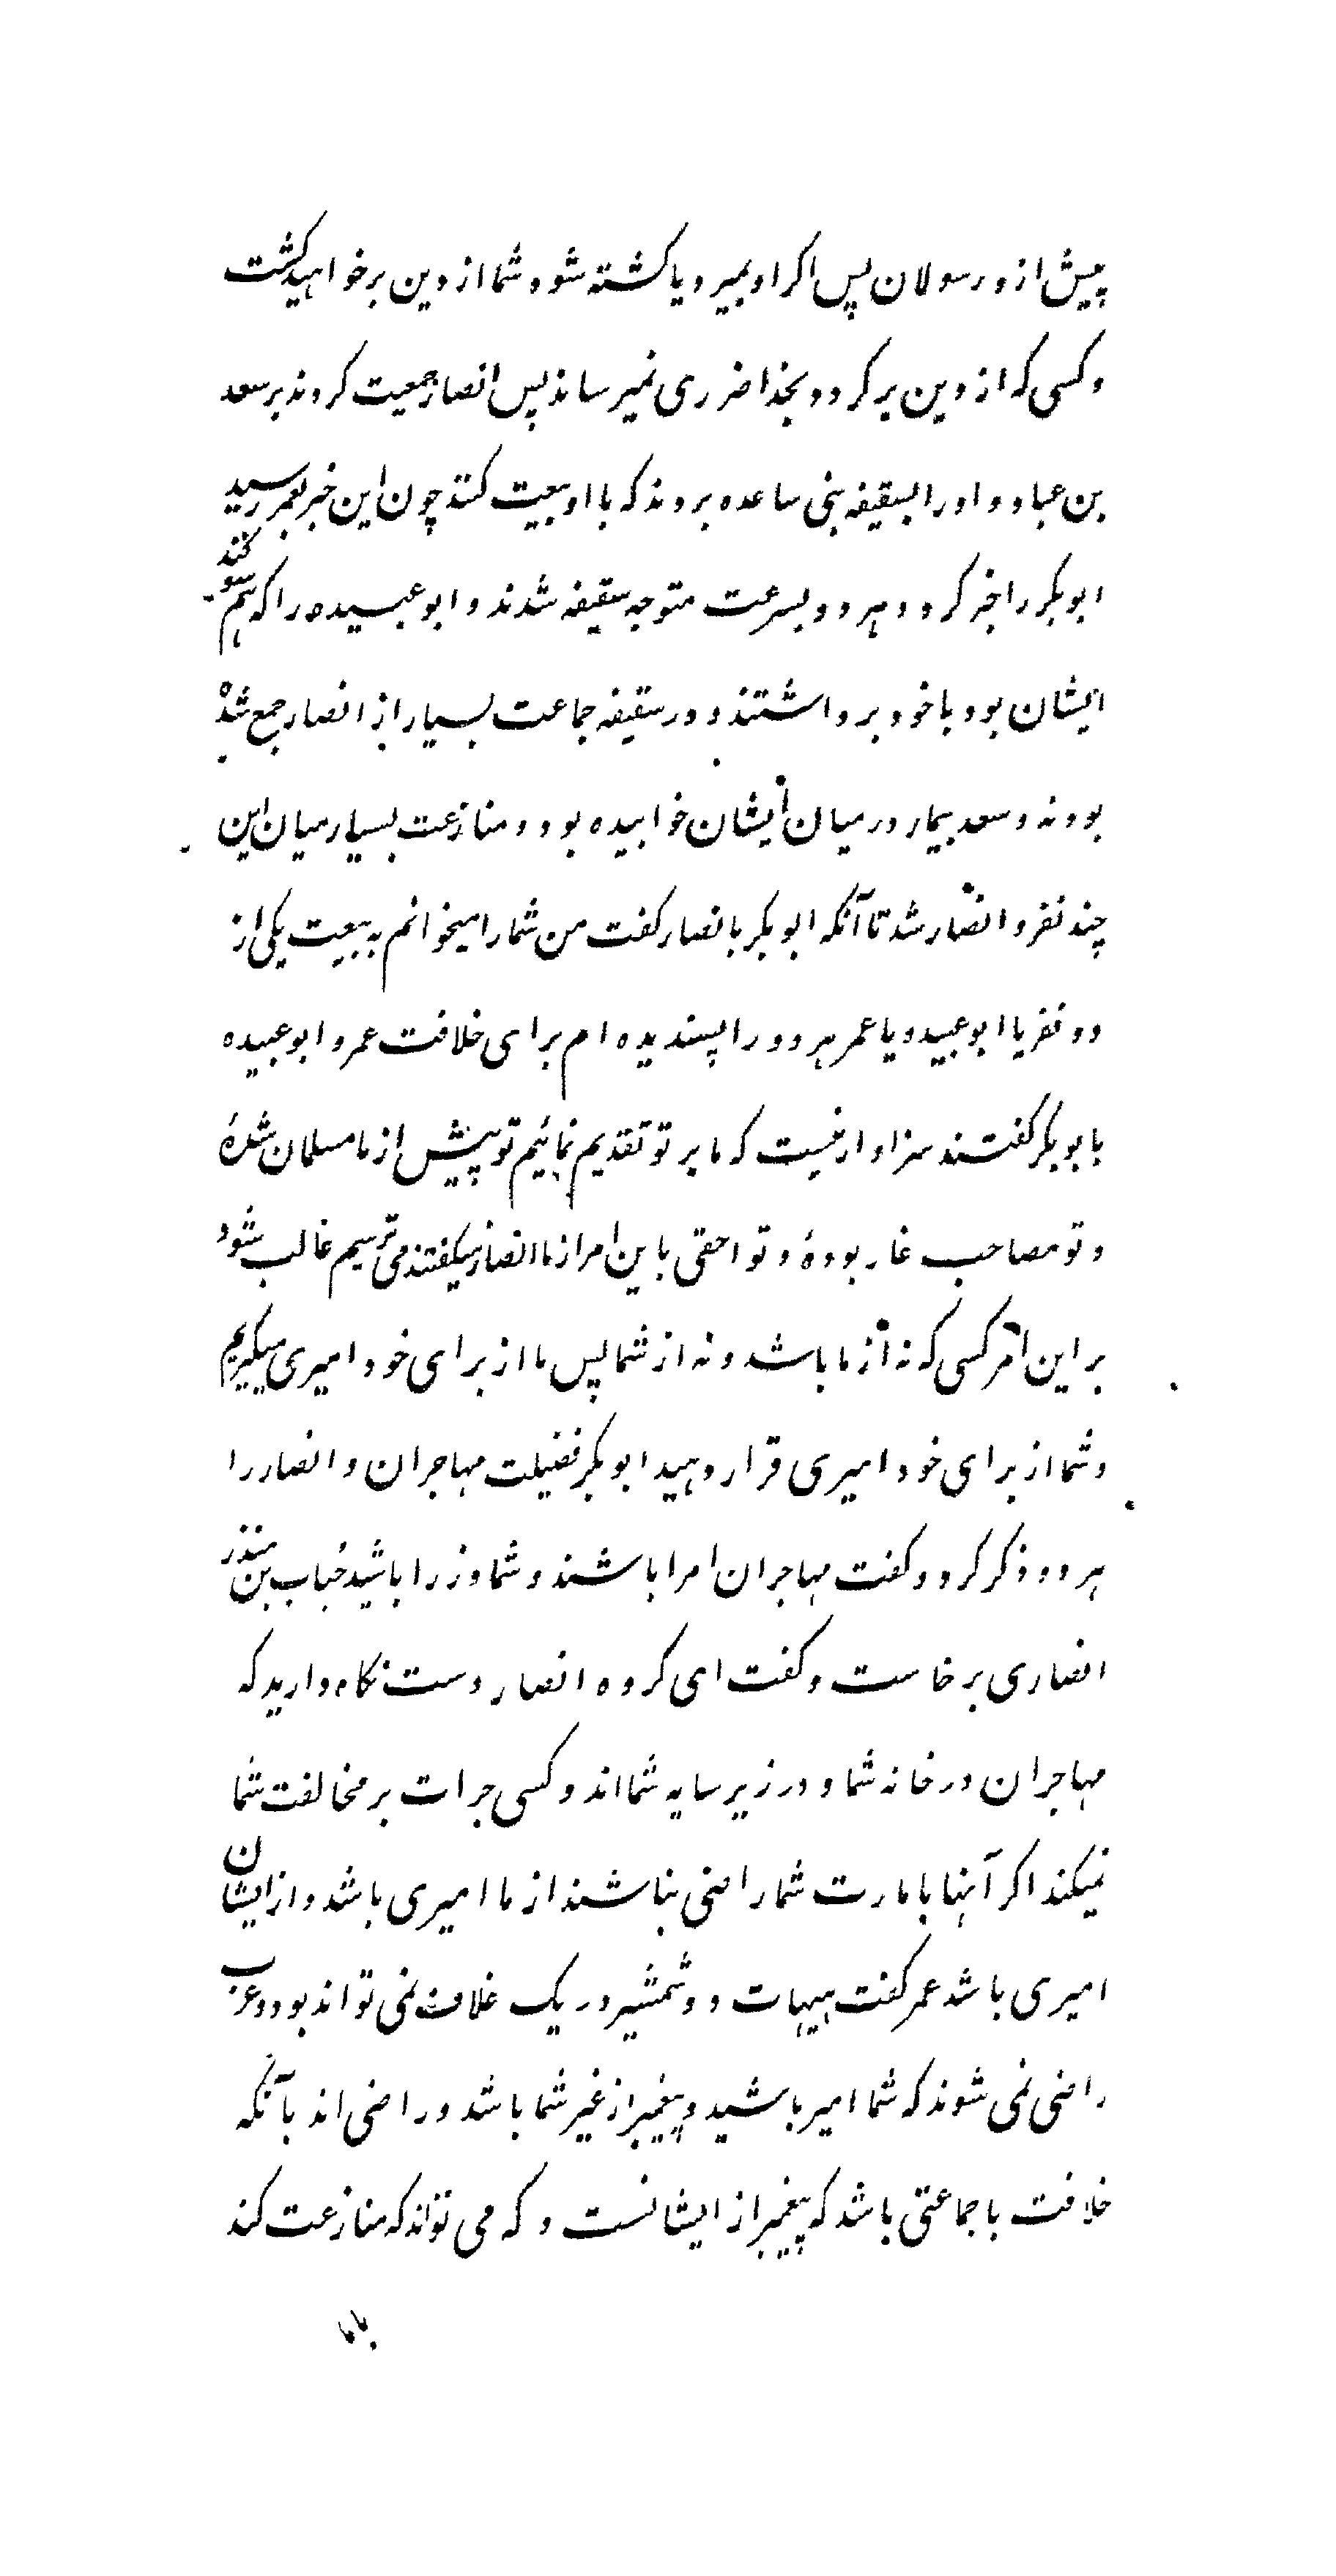 پیش از و رسولان پس اکر او بمیرد یا کشته شود شما از دین بر خواهید کشت
و کسی که از دین بر کردد بخدا ضرری نمیرساند پس انصار جمعیت کردند بر سعد
بن عباده و او را بسقیفه بنی ساعده بردند که با او بیعت کنند چون این خبر بعمر رسید
ابوبکر را خبر کرد و هر دو بسرعت متوجه سقیفه شدند و ابو عبیده را که هم سوکند
ایشان بود با خود برداشتند و در سقیفه جماعت بسیار از انصار جمع شده
بودند و سعد بیمار در میان ایشان خوابیده بود و منازعت بسیار میان این
چند نفر و انصار شد تا آنکه ابوبکر بانصار کفت من شما را میخوانم به بیعت یکی از
دو نفر یا ابو عبیده و یا عمر هر دو را پسندیده ام برای خلافت عمر و ابو عبیده
بابوبکر کفتند سزاوار نیست که ما بر تو تقدیم نمائیم تو پیش از ما مسلمان شدهٔ
و تو مصاحب غار بودهٔ و تو احقی باین امر از ما انصار میکفتند می ترسیم غالب شود
بر این امر کسی که نه از ما باشد و نه از شما پس ما از برای خود امیری میکیریم
و شما از برای خود امیری قرار دهید ابوبکر فضیلت مهاجران و انصار را
هر دو ذکر کرد و کفت مهاجران امرا باشند و شما وزرا باشید حُباب بن منذر
انصاری برخاست و کفت ای کروه انصار دست نکاه دارید که
مهاجران در خانه شما و در زیر سایه شمااند و کسی جرات بر مخالفت شما
نمیکند اکر آنها بامارت شما راضی نباشند از ما امیری باشد و از ایشان
امیری باشد عمر کفت هیهات دو شمشیر در یک غلاف نمی تواند بود و عرب
راضی نمی شوند که شما امیر باشید و پیغمبر از غیر شما باشد و راضی اند بآنکه
خلافت با جماعتی باشد که پیغمبر از ایشانست و که می تواند که منازعت کند
باما